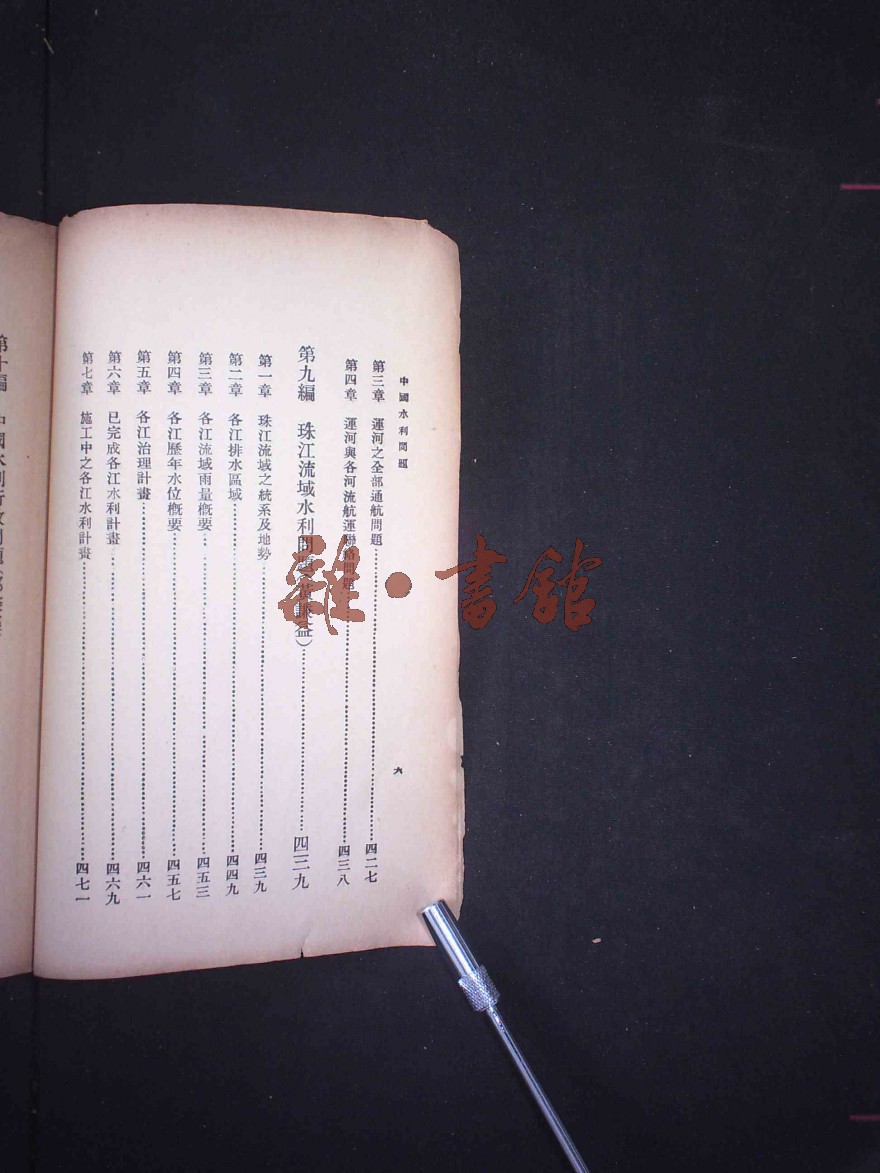 中國水利問題
六
第三章 運河之全部通航問題……四二七
第四章 運河與各河流航運聯絡問題……四三八
第九編 珠江流域水利問題(黃謙益)……四三九
第一章 珠江流域之統系及地勢……四三九
第二章 各江排水區域……四四九
第三章 各江流域雨量概要……四五三
第四章 各江歷年水位概要……四五七
第五章 各江治理計畫……四六一
第六章 已完成各江水利計畫……四六九
第七章 施工中之各江水利計畫……四七一
第十編 中國水利行政問題
雜·書館